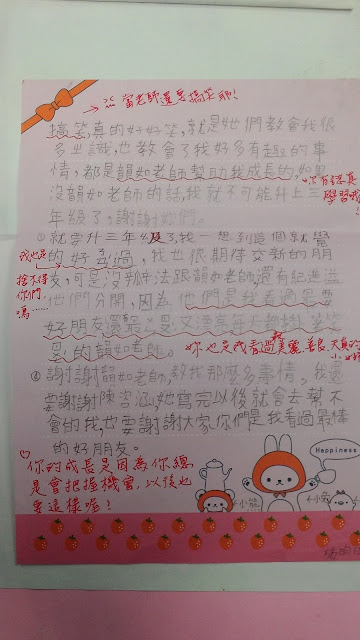 當老師還要搞笑耶!
搞笑真的好好笑,就是她們教會我很
多知識,也教會了我好多有趣的事
情,都是韻如老師幫助我成長的,如果
沒韻如老師的話,我就不可能升上三
年級了,謝謝妳們。
學習哦
就要升三年級了,我一想到這個就覺
的好難過,我也很期待交新的朋
友,可是沒辦法跟韻如老師還有
他們分開,因為他們是我看過最要
好朋友還
的韻如老師。
我也是
捨不得
你們
嗚……
妳也是我看過最美麗、善良、天真的
謝謝韻如老師,教我那麼多事情,我還
要謝謝陳姿涵,她寫完以後就會去幫不
會的我,也要謝謝大家,你們是我看過最棒
的好朋友。
你的成長是因為你總
是會把握機會,以後也
要這樣喔!
Happiness
小熊
小兔